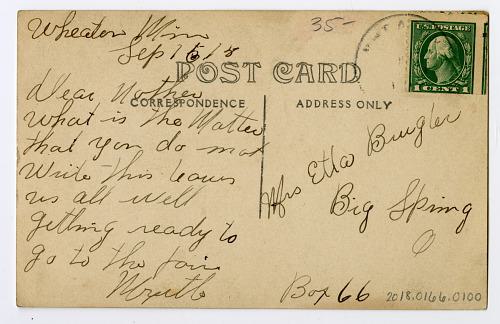 Wheaton Minn
Sep 15 15
35-
U.S. POSTAGE
1 CENT 1
POST CARD
CORRESPONDENCE
ADDRESS ONLY
Dear Mother
What is the Matter
that you do not
write this leaves
us all well
getting ready to
go to the fair
Mrs Etta Bugler
Big Spring
O
Box 66
2018.0166.0100